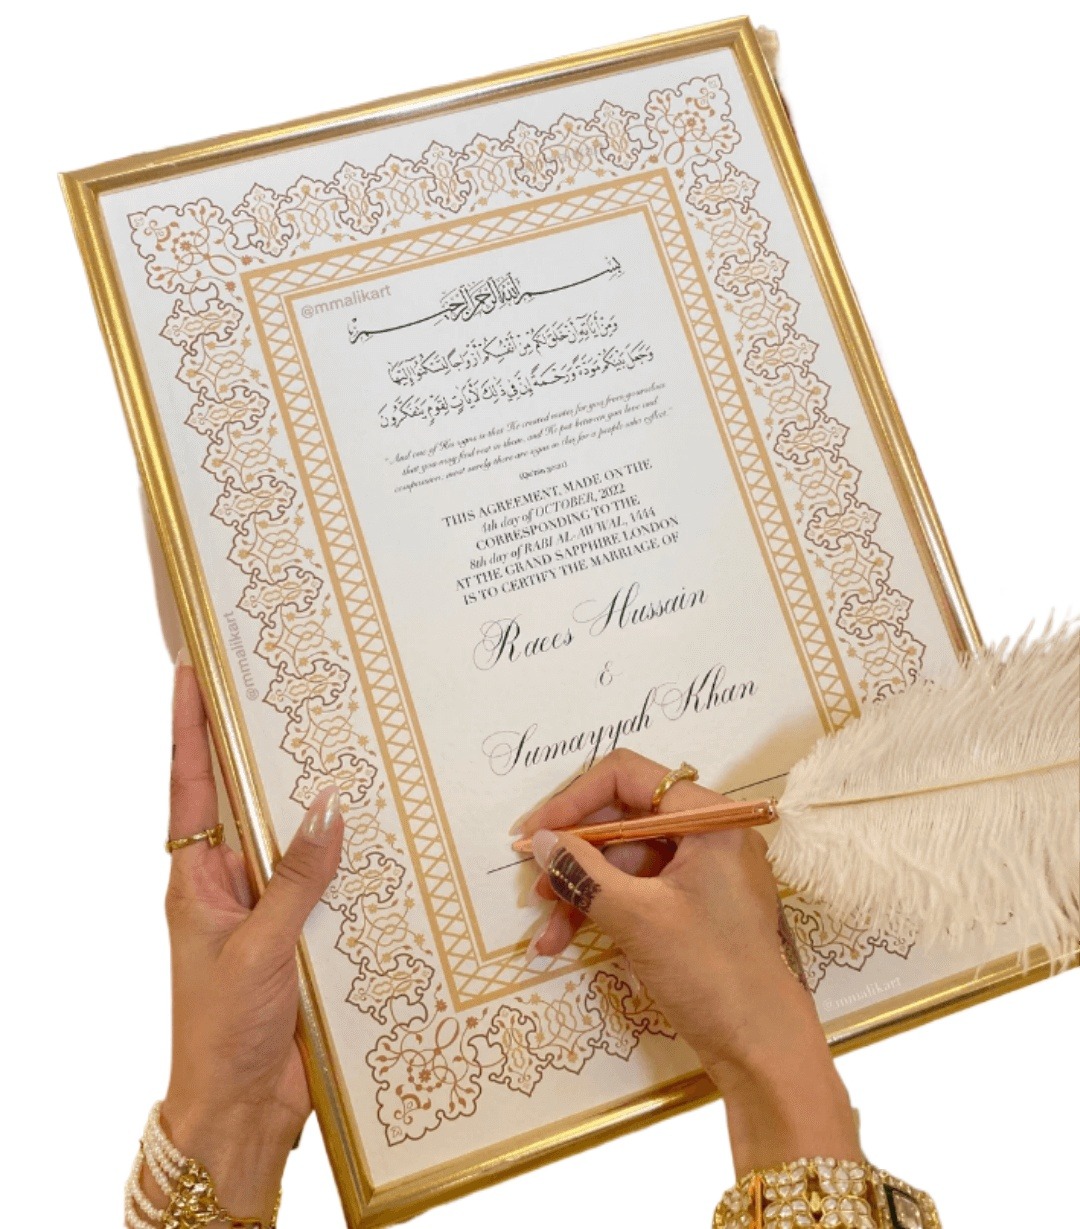 @mmalikart
بسم الله الرحمن الرحيم
وَمِنْ آيَاتِهِ أَنْ خَلَقَ لَكُمْ مِنْ أَنْفُسِكُمْ أَزْوَاجًا لِتَسْكُنُوا إِلَيْهَا
وَجَعَلَ بَيْنَكُمْ مَوَدَّةً وَرَحْمَةً إِنَّ فِي ذَلِكَ لَآيَاتٍ لِقَوْمٍ يَتَفَكَّرُونَ
"And one of His signs is that He created mates for you from yourselves
that you may find rest in them, and He put between you love and
compassion; most surely there are signs in this for a people who reflect."
THIS AGREEMENT, MADE ON THE
4th day of OCTOBER, 2022
CORRESPONDING TO THE
8th day of RABI AL-AWWAL, 1444
AT THE GRAND SAPPHIRE LONDON
IS TO CERTIFY THE MARRIAGE OF
Raees Hussain
&
Sumayyah Khan
@mmalikart
@mmalikart